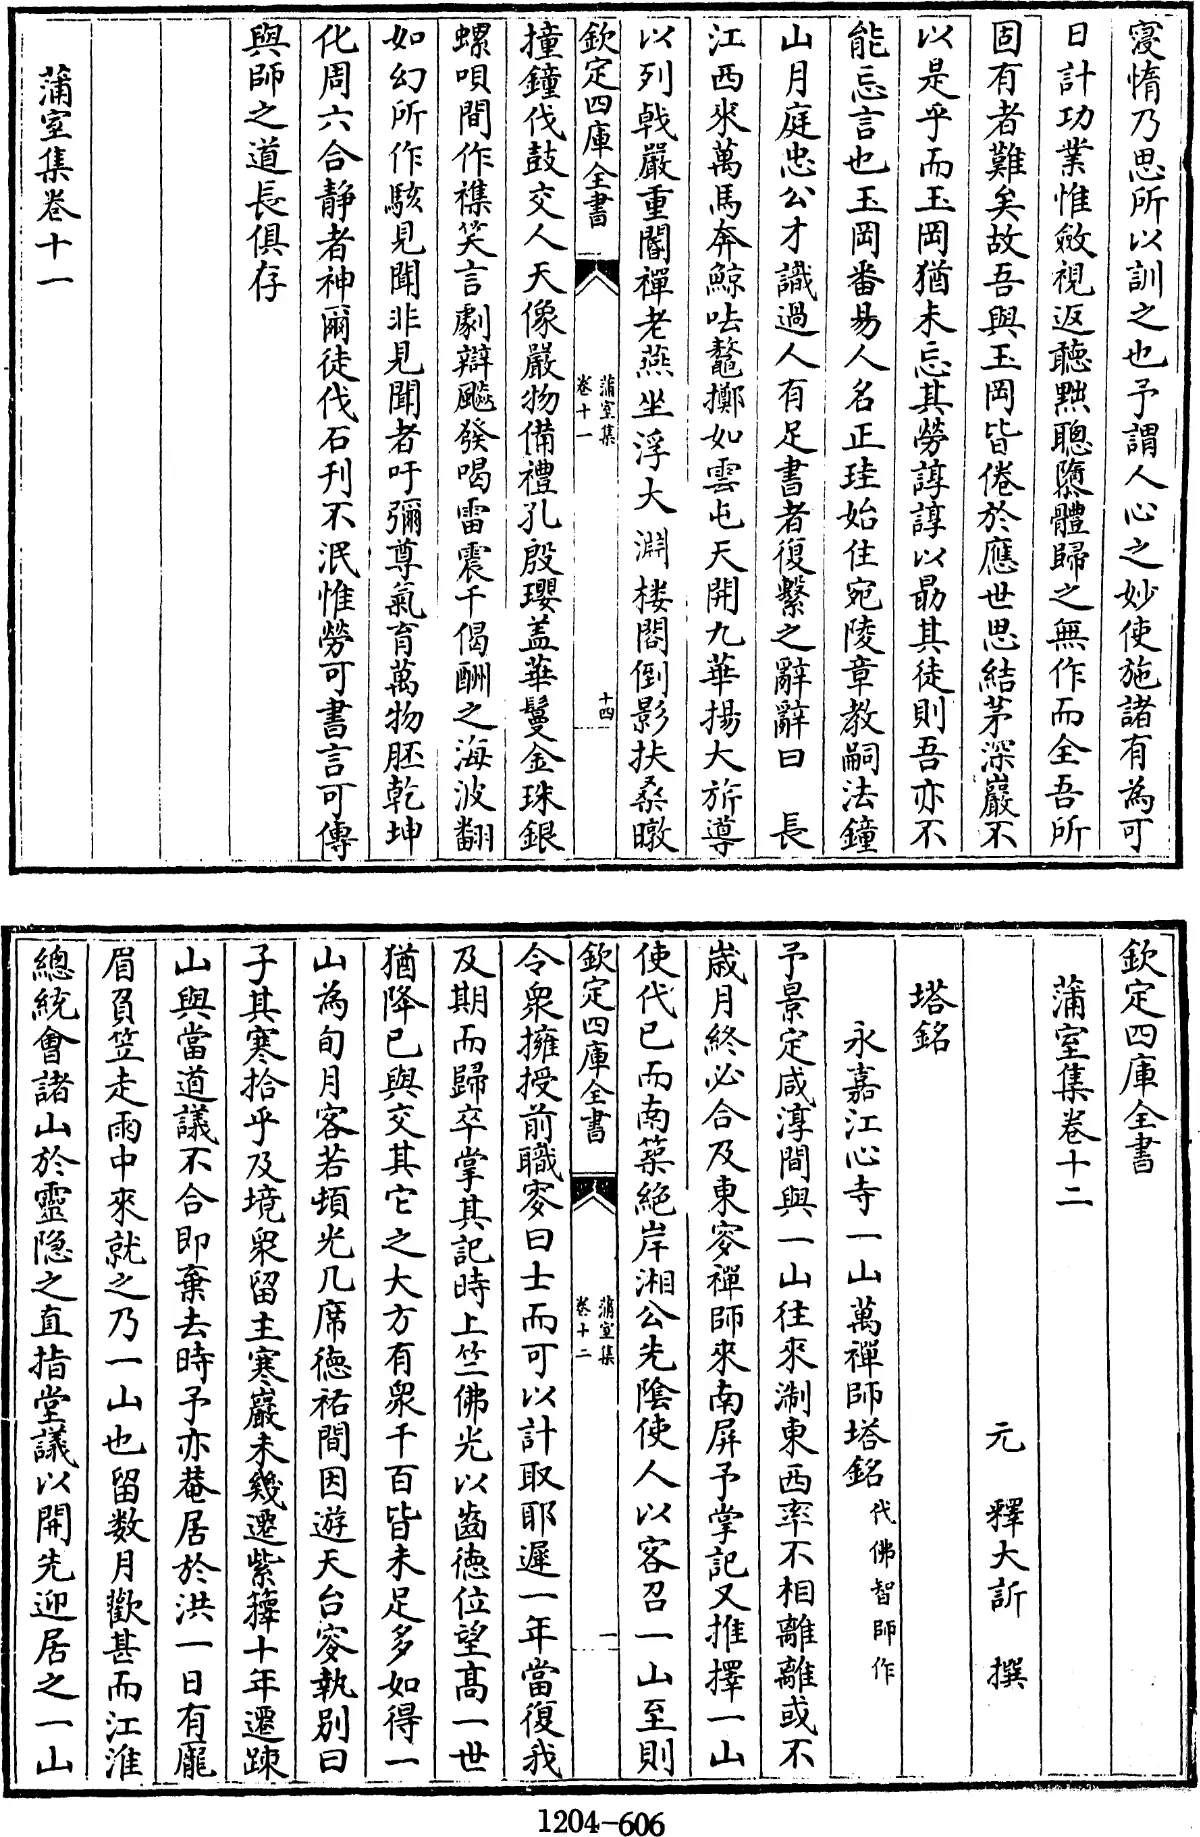 寖惰乃思所以訓之也予謂人心之妙使施諸有為可
日計功業惟斂視返聽黜聰隳體歸之無作而全吾所
固有者難矣故吾與玉岡皆倦於應世思結茅深巖不
以是乎而玉岡猶未忘其勞諄諄以勗其徒則吾亦不
能忘言也玉岡番易人名正珪始住宛陵章教嗣法鐘
山月庭忠公才識過人有足書者復繫之辭辭曰　長
江西來萬馬奔鯨呿鼇擲如雲屯天開九華揚大旂導
以列戟嚴重閽禪老燕坐浮大淵楼閣倒影扶桑暾
欽定四庫全書
蒲室集
卷十一
十四
撞鐘伐鼓交人天像嚴物備禮孔殷瓔盖華鬘金珠銀
螺唄間作襍笑言劇辯飈發喝雷震千偈酬之海波翻
如幻所作駭見聞非見聞者吁彌尊氣育萬物胚乾坤
化周六合静者神爾徒伐石刊不泯惟勞可書言可傳
與師之道長俱存
蒲室集卷十一
欽定四庫全書
蒲室集卷十二
元　釋大訢　撰
塔銘
永嘉江心寺一山萬禪師塔銘代佛智師作
予景定咸淳間與一山往來淛東西率不相離離或不
歲月終必合及東叟禪師來南屏予掌記又推擇一山
使代已而南築絶岸湘公先陰使人以客召一山至則
欽定四庫全書
蒲室集
卷十二
一
令衆擁授前職叟曰士而可以計取耶遲一年當復我
及期而歸卒掌其記時上竺佛光以齒徳位望髙一世
猶降已與交其它之大方有衆千百皆未足多如得一
山為旬月客若頃光几席徳祐間因遊天台叟執别曰
子其寒拾乎及境衆留主寒巖未幾遷紫籜十年遷踈
山與當道議不合即棄去時予亦菴居於洪一日有龎
眉負笠走雨中來就之乃一山也留数月歡甚而江淮
總統會諸山於靈隐之直指堂議以開先迎居之一山
1204-606